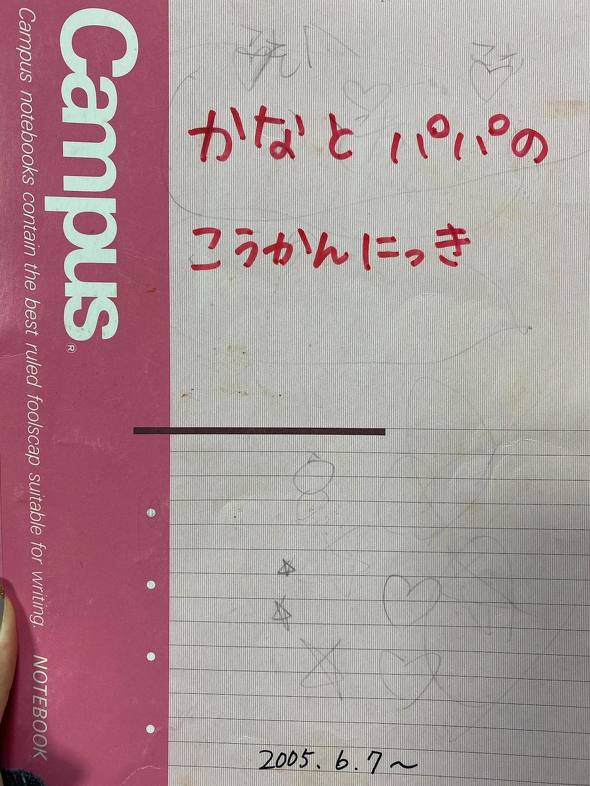 Campus®
Campus notebooks contain the best ruled foolscap suitable for writing. NOTEBOOK
かなと パパの
こうかんにっき
2005.6.7〜